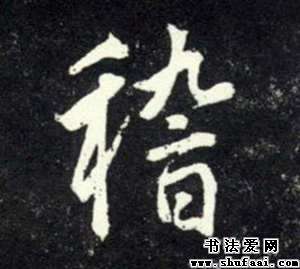 稽
书法爱网
www.shufaai.com